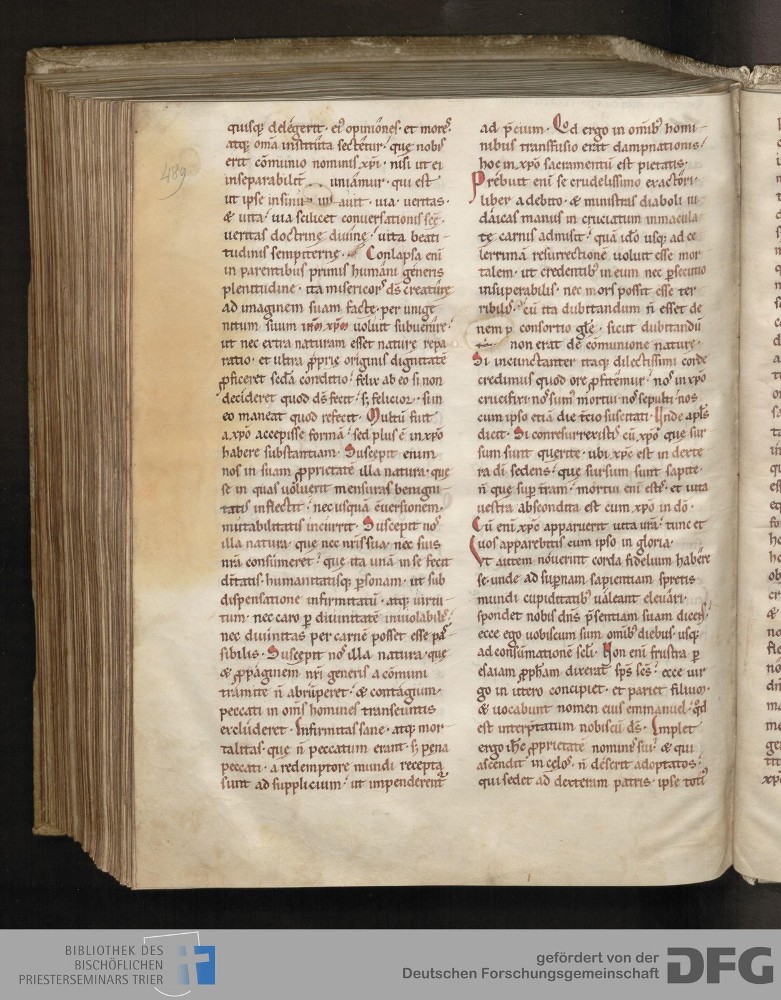 489
quisq; delegerit · ei᷒ opiniones · et mores
atq; om̄a instituta sectetur · que nobis
erit cōmunio nominis xp̄i · nisi ut ei
inseparabilit̄ uniamur · qui est
ut ipse insinuauit · uia · ueritas ·
& uita · uia scilicet conuersationis sc̄e ·
ueritas doctrine diuine · uita beati-
tudinis sempiterne · Conlapsa eni
in parentibus primis humani generis
plenitudine · ita misericors d̄s creature
ad imaginem suam facte · per unige
nitum suum ih̄m xp̄m uoluit subuenire ·
ut nec extra naturam esset nature repa
ratio · et ultra ꝓprie originis dignitatē
ꝓficeret sec̄da conditio · felix ab eo si non
decideret quod d̄s fecit · s; felicior · si in
eo maneat quod refecit · Multū fuit
a xp̄o accepisse formā · sed plus ē in xp̄o
habere substantiam · Suscepit enim
nos in suam ꝓprietatē illa natura · que
se in quas uoluerit mensuras benigni-
tatis inflectit · nec usquā euersionem
mutabilitatis incurrit · Suscepit nos
illa natura · que nec nr̄is sua · nec suis
nr̄a consumeret · que ita unā in se fecit
dītatis · humanitatisq; ꝑsonam · ut sub
dispensatione infirmitatū · atq; uirtu-
tum · nec caro ꝑ diuinitatē inuiolabilis ·
nec diuinitas per carnē posset esse pas-
sibilis · Suscepit nos illa natura · que
& ꝓpaginem nr̄i generis a cōmuni
tramite n̄ abrūperet · & contagium ·
peccati in om̄s homines transeuntis
excluderet · Infirmitas sane · atq; mor-
talitas · que n̄ peccatum erant · s; pena
peccati · a redemptore mundi recepta
sunt ad supplicium · ut impenderent᷑
ad p̄cium · Qd ergo in omib; homi-
nibus transfusio erat dampnationis ·
hoc in xp̄o sacramentū est pietatis ·
Prebuit eni se crudelissimo exactori ·
liber a debito · & ministras diaboli iu-
daicas manus in cruciatum immacula
te carnis admisit · quā id̄o usq; ad ce
lerrimā resurrectionē uoluit esse mor
talem · ut credentib; in eum nec ꝑsecutio
insuperabilis · nec mors possit esse ter
ribilis · cū ita dubitandum n̄ esset de
nem ꝑ consortio gl̄e · sicut dubitandū
non erat de cōmunione nature ·
Si incunctanter itaq; dilectissimi corde
credimus quod ore ꝓfitemur · nos in xp̄o
crucifixi · nos sumus mortui · nos sepulti · nos
cum ipso etiā die t̄cio suscitati · Unde apl̄s
dicit · Si conresurrexistis cū xp̄o que sur
sum sunt querite · ubi xp̄c est in dexte
ra dī sedens · que sursum sunt sapite ·
n̄ que suꝑ tr̄am · mortui eni estis · et uita
uestra abscondita est cum xp̄o in do ·
Cū eni xp̄c apparuerit uita ur̄a · tunc et
uos apparebitis cum ipso in gloria ·
Ut autem nouerint corda fidelium habere
se unde ad suꝑnam sapientiam spretis
mundi cupiditatib; ualeant eleuari ·
spondet nobis dn̄s p̄sentiam suam dicens ·
ecce ego uobiscum sum omib; diebus · usq;
ad consumationē scl̄i · Non eni frustra ꝑ
esaiam ꝓph̄am dixerat sp̄s sc̄s · ecce uir
go in utero concipiet · et pariet filium ·
& uocabunt nomen eius emmanuel · qd̄
est interp̄tatum nobiscū d̄s · Implet
ergo ih̄c ꝓprietatē nominis sui · & qui
ascendit in celos · n̄ deserit adoptatos ·
qui sedet ad dexteram patris · ipse toti᷒
BIBLIOTHEK DES
BISCHÖFLICHEN
PRIESTERSEMINARS TRIER
gefördert von der
Deutschen Forschungsgemeinschaft
DFG